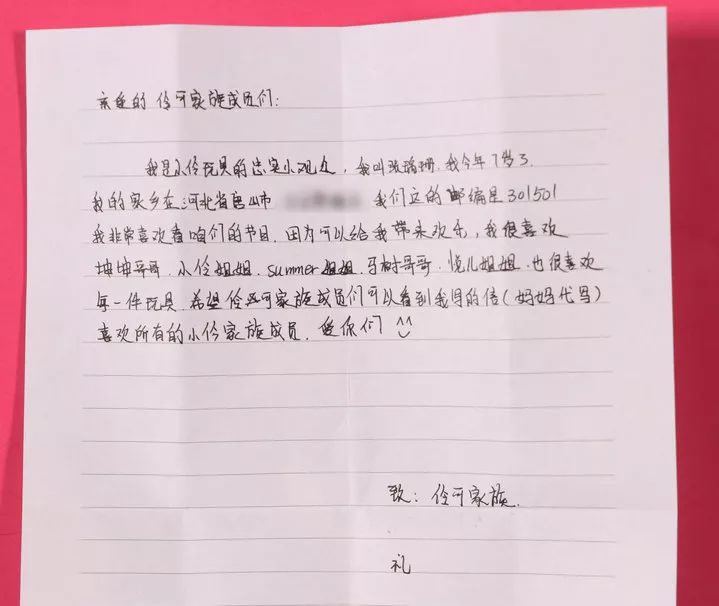 亲爱的 伶可家族成员们:
我是小伶玩具的忠实小观众,我叫张瑞珊.我今年7岁了.
我的家乡在河北省唐山市 我们这的邮编是301501
我非常喜欢看咱们的节目.因为可以给我带来欢乐,我很喜欢
坤坤哥哥.小伶姐姐.summer姐姐.马树哥哥.悦儿姐姐.也很喜欢
每一件玩具.希望伶可家族成员们可以看到我写的信(妈妈代写)
喜欢所有的小伶家族成员.爱你们 ^^
致:伶可家族.
礼